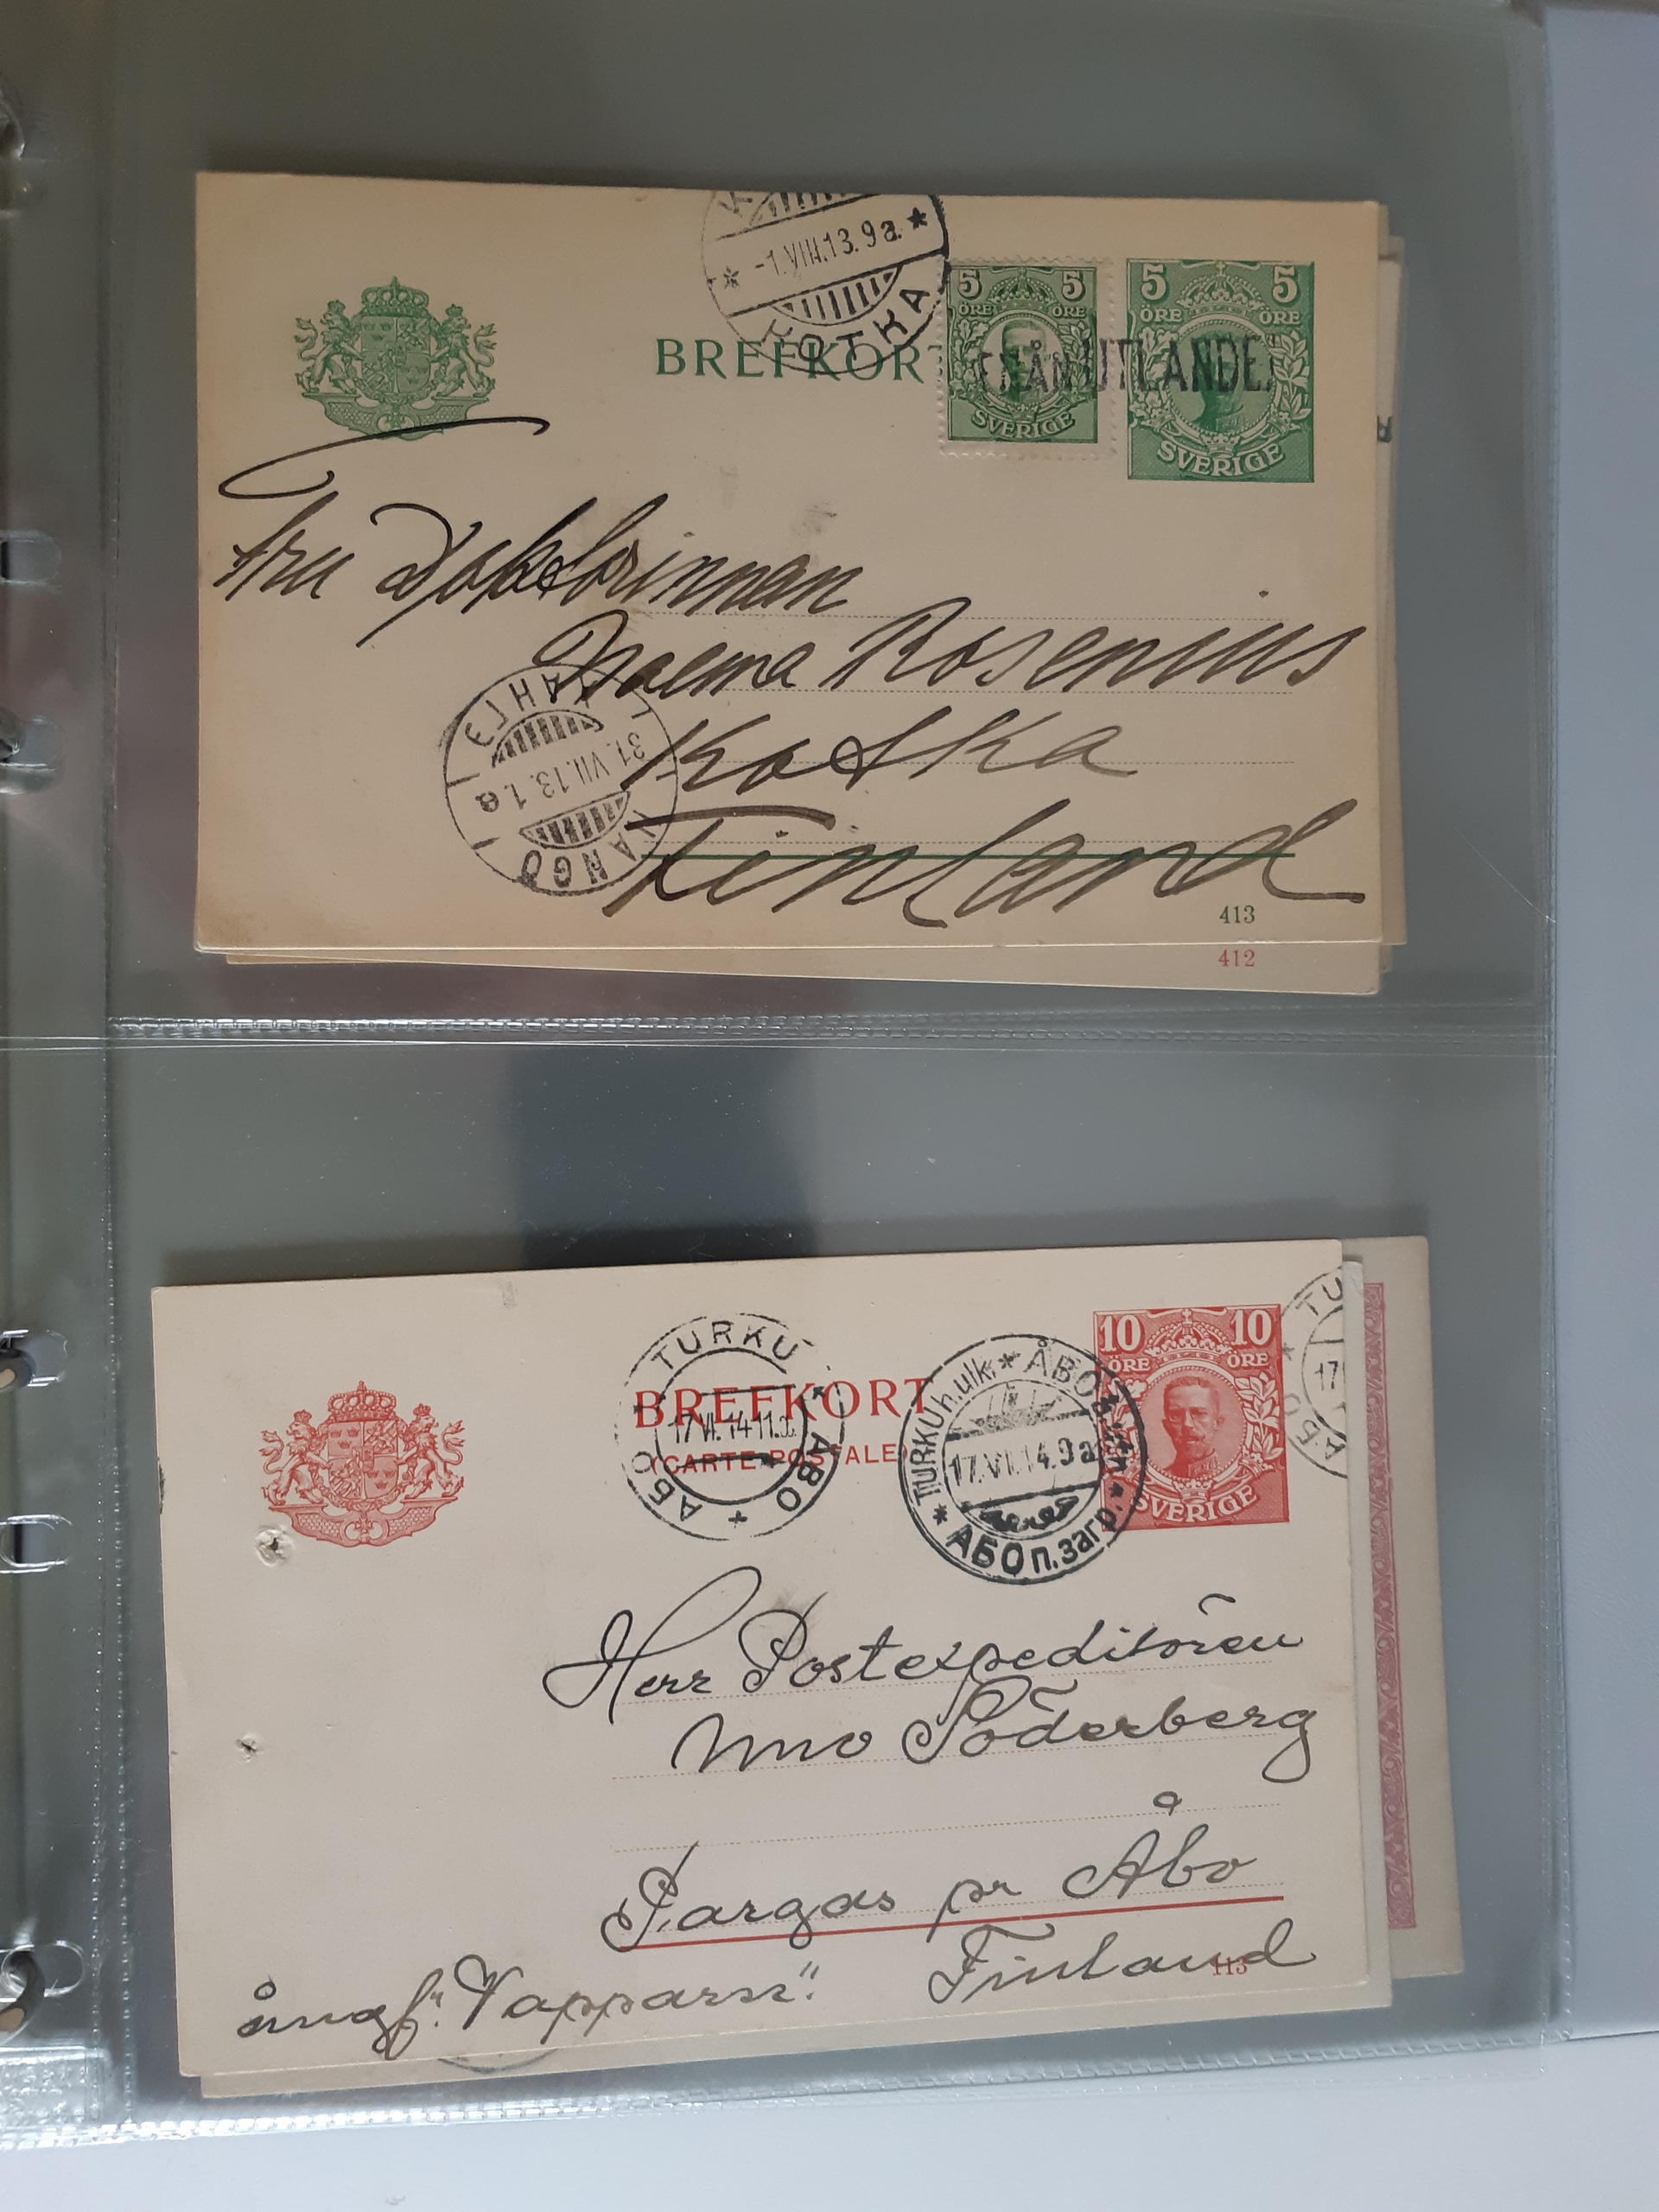 -1.VIII.13.9a.
KOTKA
5 5
ÖRE ÖRE
SVERIGE
5 5
ÖRE ÖRE
SVERIGE
BREFKORT
FRÅN UTLANDET
Fru Doktorinnan
Naema Rosenius
Kotka
Finland
ГАНГЭ
31.VII.13.1.e
HANGÖ
413
412
TURKU
17.VI.14-11
АБО ÅBO
TURKU h.ulk. ÅBO
17.VI.14.9a
АБО п.загр.
10 10
ÖRE ÖRE
SVERIGE
TU
17
АБО
BREFKORT
(CARTE POSTALE)
Herr Postexpeditören
Uno Söderberg
Pargas pr Åbo
ångf. "Vapparn". Finland
113